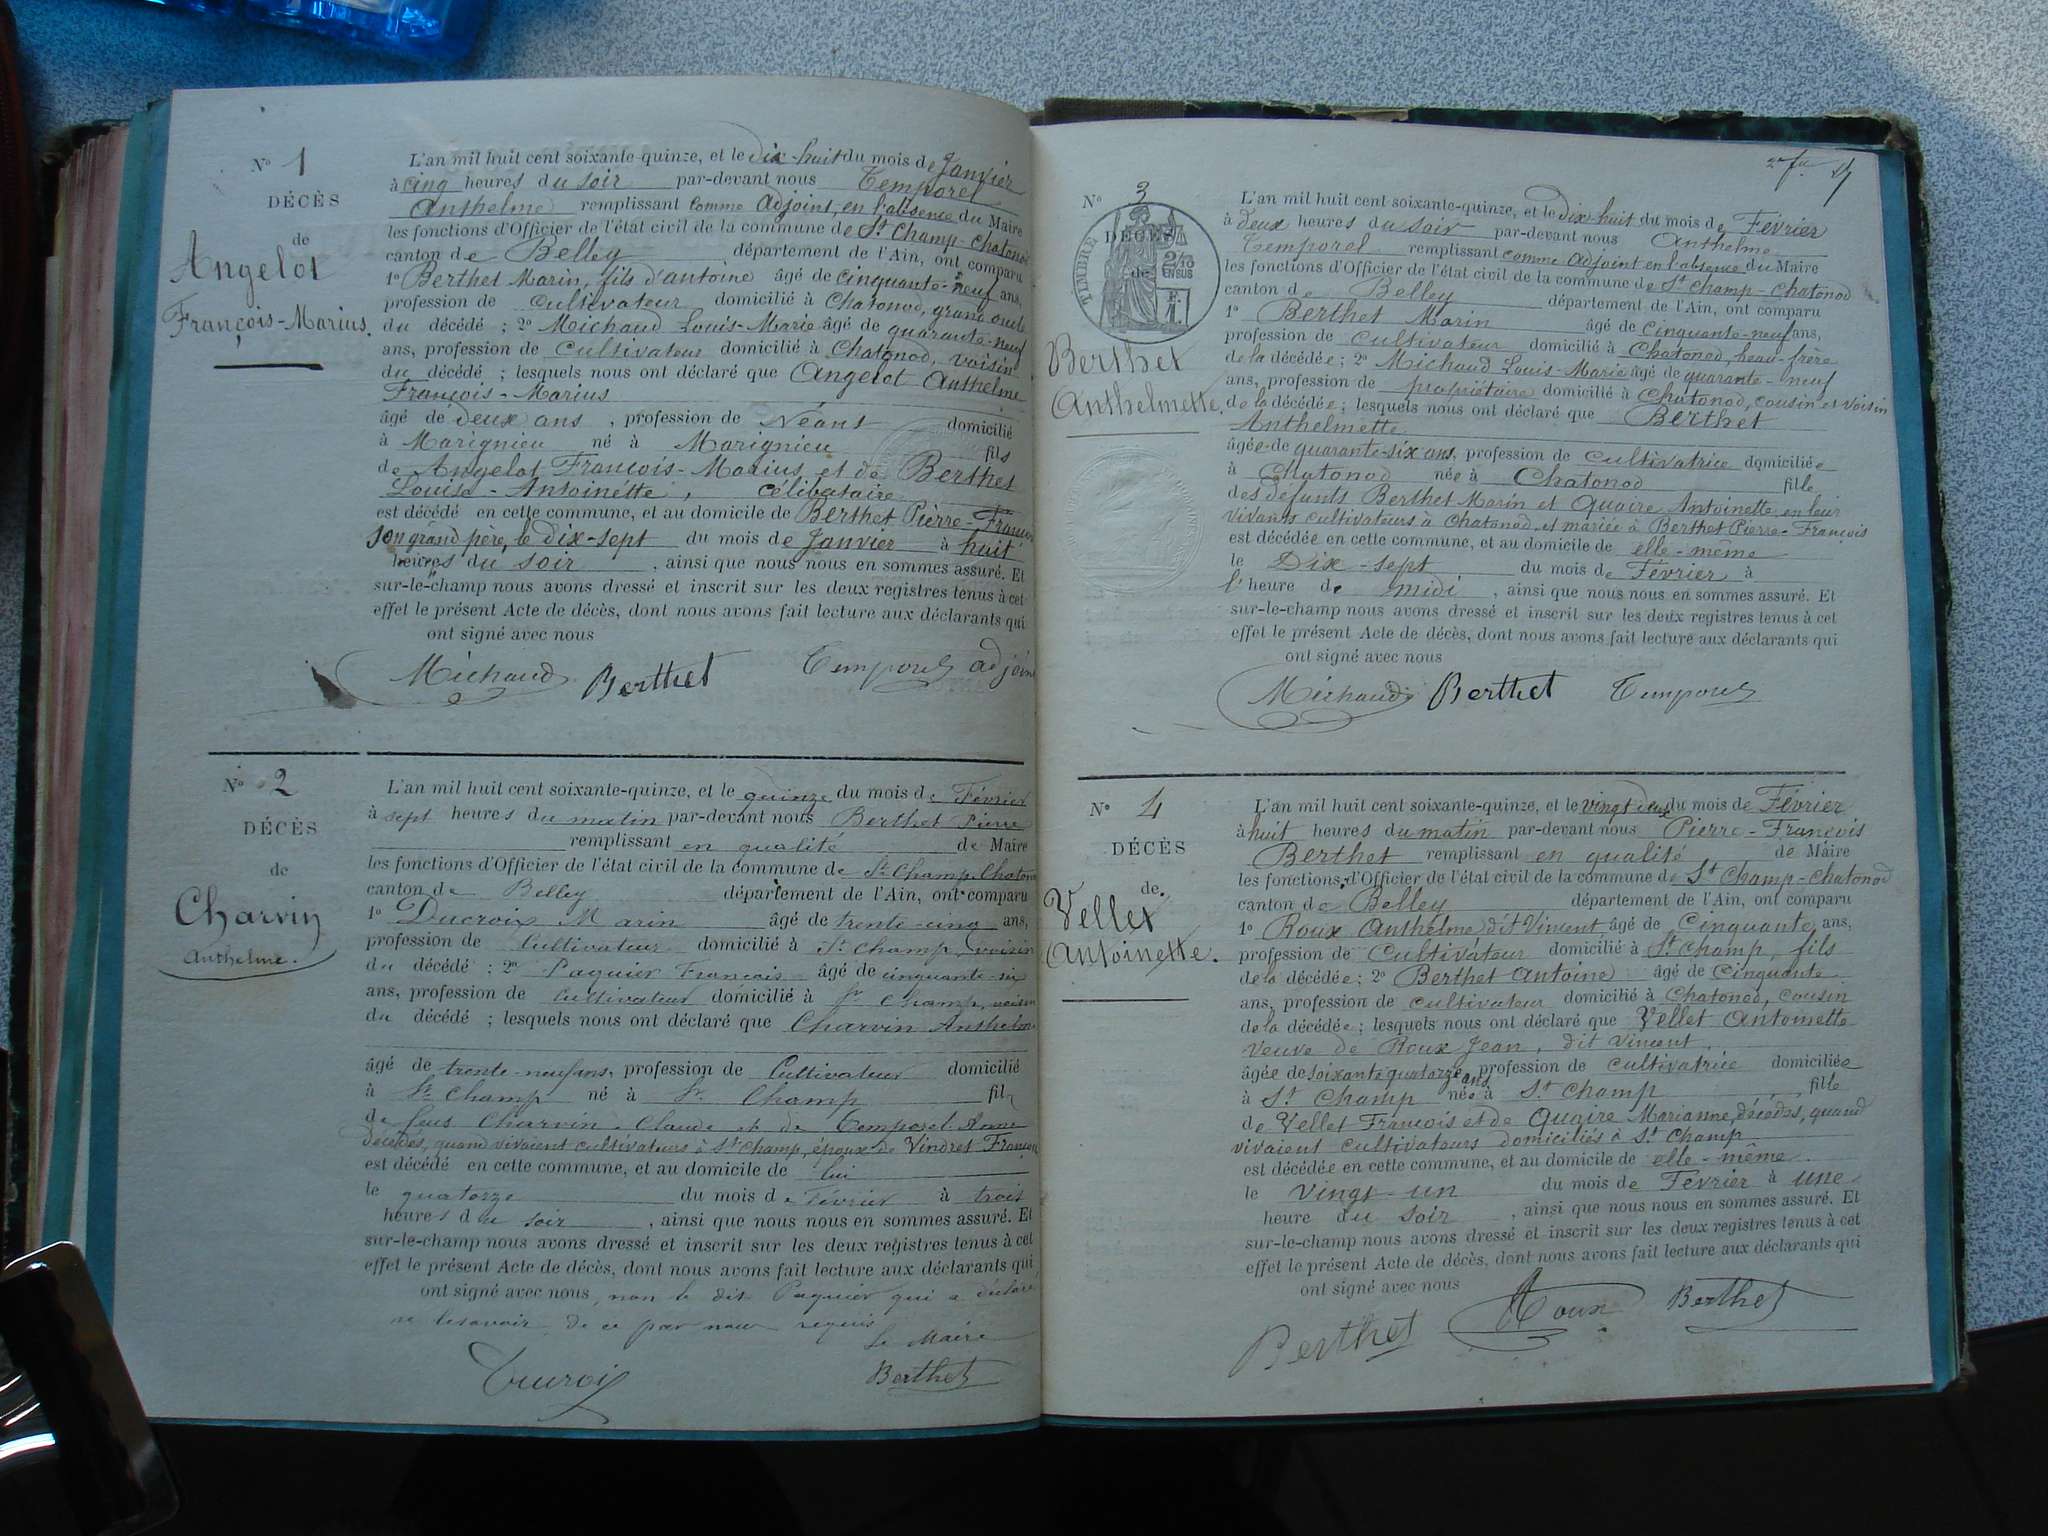 N° 1
DÉCÈS
de
Angelot
François-Marius.
L'an mil huit cent soixante-quinze, et le dix-huit du mois de Janvier
à cinq heures du soir par-devant nous Temporel
Anthelme remplissant comme Adjoint, en l'absence du Maire
les fonctions d'Officier de l'état civil de la commune de St Champ-Chatonod
canton de Belley département de l'Ain, ont comparu
1° Berthet Marin, fils d'antoine âgé de cinquante-neuf ans,
profession de cultivateur domicilié à Chatonod, grand oncle
du décédé ; 2° Michaud Louis-Marie âgé de quarante-neuf
ans, profession de cultivateur domicilié à Chatonod, voisin
du décédé ; lesquels nous ont déclaré que Angelot Anthelme
François-Marius
âgé de deux ans , profession de Néant domicilié
à Marignieu né à Marignieu fils
de Angelot François-Marius et de Berthet
Louise-Antoinette, célibataire
est décédé en cette commune, et au domicile de Berthet Pierre-François
son grand père, le dix-sept du mois de Janvier à huit
heures du soir , ainsi que nous nous en sommes assuré. Et
sur-le-champ nous avons dressé et inscrit sur les deux registres tenus à cet
effet le présent Acte de décès, dont nous avons fait lecture aux déclarants qui
ont signé avec nous
Michaud Berthet Temporel adjoint
N° 2
DÉCÈS
de
Charvin
Anthelme.
L'an mil huit cent soixante-quinze, et le quinze du mois de Février
à sept heures du matin par-devant nous Berthet Pierre
remplissant en qualité de Maire
les fonctions d'Officier de l'état civil de la commune de St Champ Chatonod
canton de Belley département de l'Ain, ont comparu
1° Ducroix Marin âgé de trente-cinq ans,
profession de Cultivateur domicilié à St Champ, voisin
du décédé ; 2° Paquier François âgé de cinquante-six
ans, profession de Cultivateur domicilié à St Champ, voisin
du décédé ; lesquels nous ont déclaré que Charvin Anthelme
âgé de trente-neuf ans, profession de Cultivateur domicilié
à St Champ né à St Champ fils
de feus Charvin Claude et de Temporel Anne
décédés, quand vivaient cultivateurs à St Champ, époux de Vindret François
est décédé en cette commune, et au domicile de lui
le quatorze du mois de Février à trois
heures du soir , ainsi que nous nous en sommes assuré. Et
sur-le-champ nous avons dressé et inscrit sur les deux registres tenus à cet
effet le présent Acte de décès, dont nous avons fait lecture aux déclarants qui
ont signé avec nous, non le dit Paquier qui a déclaré
ne le savoir de ce par nous requis
Le Maire
Berthet
2e fu
N° 3
DÉCÈS
de
TIMBRE
2/10
EN SUS
Berthet
Anthelmette.
L'an mil huit cent soixante-quinze, et le dix-huit du mois de Février
à deux heures du soir par-devant nous Anthelme
Temporel remplissant comme adjoint en l'absence du Maire
les fonctions d'Officier de l'état civil de la commune de St Champ-Chatonod
canton de Belley département de l'Ain, ont comparu
1° Berthet Marin âgé de cinquante-neuf ans,
profession de cultivateur domicilié à Chatonod, beau-frère
de la décédée ; 2° Michaud Louis-Marie âgé de quarante-neuf
ans, profession de propriétaire domicilié à Chatonod, cousin et voisin
de la décédée ; lesquels nous ont déclaré que Berthet
Anthelmette
âgée de quarante-six ans, profession de cultivatrice domiciliée
à Chatonod née à Chatonod fille
des défunts Berthet Marin et Quaire Antoinette, en leur
vivants cultivateurs à Chatonod et mariée à Berthet Pierre-François
est décédée en cette commune, et au domicile de elle-même
le Dix-sept du mois de Février à
l'heure de midi , ainsi que nous nous en sommes assuré. Et
sur-le-champ nous avons dressé et inscrit sur les deux registres tenus à cet
effet le présent Acte de décès, dont nous avons fait lecture aux déclarants qui
ont signé avec nous
Michaud Berthet Temporel
N° 4
DÉCÈS
de
Vellet
Antoinette.
L'an mil huit cent soixante-quinze, et le vingt deux du mois de Février
à huit heures du matin par-devant nous Pierre-François
Berthet remplissant en qualité de Maire
les fonctions d'Officier de l'état civil de la commune de St Champ-Chatonod
canton de Belley département de l'Ain, ont comparu
1° Roux Anthelme dit Vincent âgé de Cinquante ans,
profession de Cultivateur domicilié à St Champ, fils
de la décédée ; 2° Berthet Antoine âgé de Cinquante
ans, profession de cultivateur domicilié à Chatonod, cousin
de la décédée ; lesquels nous ont déclaré que Vellet Antoinette
veuve de Roux Jean, dit Vincent.
âgée de soixante quatorze ans, profession de cultivatrice domiciliée
à St Champ née à St Champ fille
de Vellet François et de Quaire Marianne, décédés, quand
vivaient cultivateurs domiciliés à St Champ
est décédée en cette commune, et au domicile de elle-même.
le vingt-un du mois de Février à une
heure du soir , ainsi que nous nous en sommes assuré. Et
sur-le-champ nous avons dressé et inscrit sur les deux registres tenus à cet
effet le présent Acte de décès, dont nous avons fait lecture aux déclarants qui
ont signé avec nous
Berthet Roux Berthet